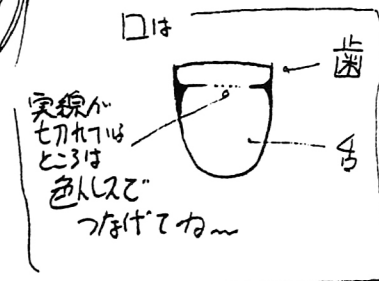 口は
歯
舌
実線が
切れているところは
色トレスで
つなげてね〜